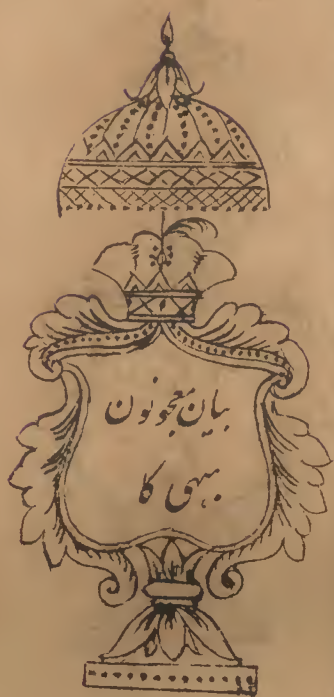 بیان معجونون
بہی کا